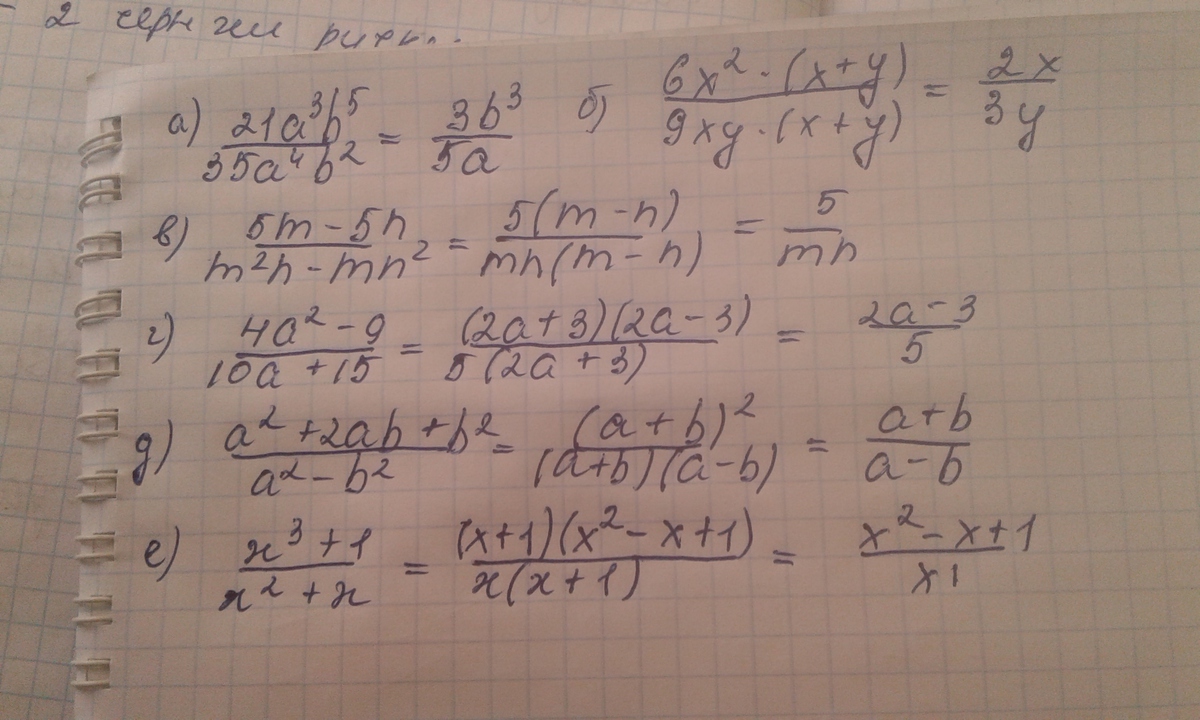 - 2
а) 21a³b⁵/35a⁴b² = 3b³/5a б) 6x² · (x+y)/9xy · (x+y) = 2x/3y
в) 5m - 5n/m²n - mn² = 5(m - n)/mn(m - n) = 5/mn
г) 4a² - 9/10a + 15 = (2a+3)(2a-3)/5(2a+3) = 2a-3/5
д) a² + 2ab + b²/a² - b² = (a+b)²/(a+b)(a-b) = a+b/a-b
е) x³ + 1/x² + x = (x+1)(x² - x + 1)/x(x+1) = x² - x + 1/x